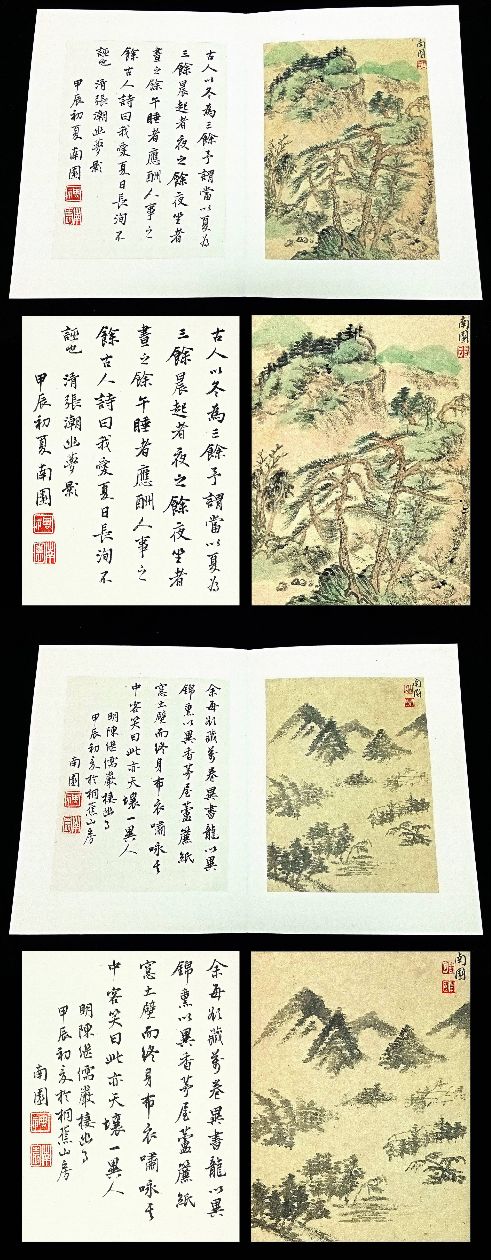 古人以冬為三餘予謂當以夏為
三餘晨起者夜之餘夜坐者
晝之餘午睡者應酬人事之
餘古人詩曰我愛夏日長洵不
誣也 清張潮幽夢影
甲辰初夏南園
南園
古人以冬為三餘予謂當以夏為
三餘晨起者夜之餘夜坐者
晝之餘午睡者應酬人事之
餘古人詩曰我愛夏日長洵不
誣也 清張潮幽夢影
甲辰初夏南園
南園
余每欲藏萬卷異書龍以異
錦熏以異香茅屋蘆簾紙
窓土壁而終身布衣嘯咏其
中客笑曰此亦天壤一異人
明陳繼儒巖棲幽事
甲辰初夏於桐蕉山房
南園
南園
余每欲藏萬卷異書龍以異
錦熏以異香茅屋蘆簾紙
窓土壁而終身布衣嘯咏其
中客笑曰此亦天壤一異人
明陳繼儒巖棲幽事
甲辰初夏於桐蕉山房
南園
南園